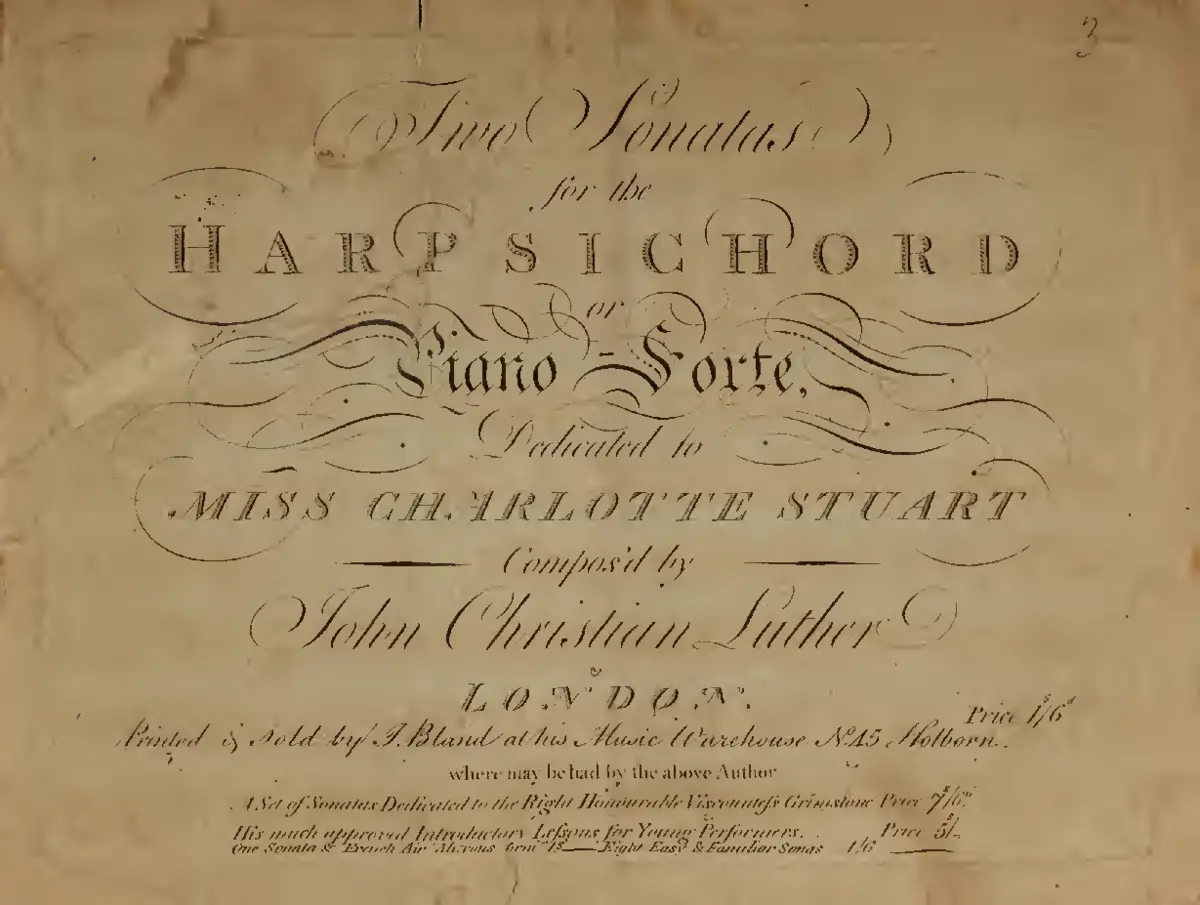 3
Two Sonatas
for the
HARPSICHORD
or
Piano-Forte,
Dedicated to
MISS CHARLOTTE STUART
Compos'd by
John Christian Luther
LONDON.
Price 1s/6d
Printed & Sold by J. Bland at his Music Warehouse No. 45 Holborn.
where may be had by the above Author
A Set of Sonatas Dedicated to the Right Honourable Viscountess Grimstone Price 7s/6d
His much approved Introductory Lessons for Young Performers. Price 5s/-
One Sonata & French Air 1s Eight Easy & Familiar Songs 1/6